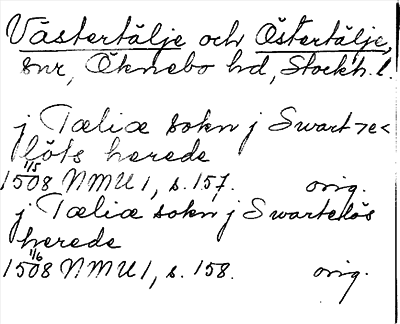 Västertälje och Östertälje,
snr, Öknebo hd, Stockh. l.
j Tæliæ sokn j Swart>e<
löts herede
1/5 1508 NMU 1, s. 157. orig.
j Tæliæ sokn j Swartelös
herede
1/6 1508 NMU 1, s. 158. orig.